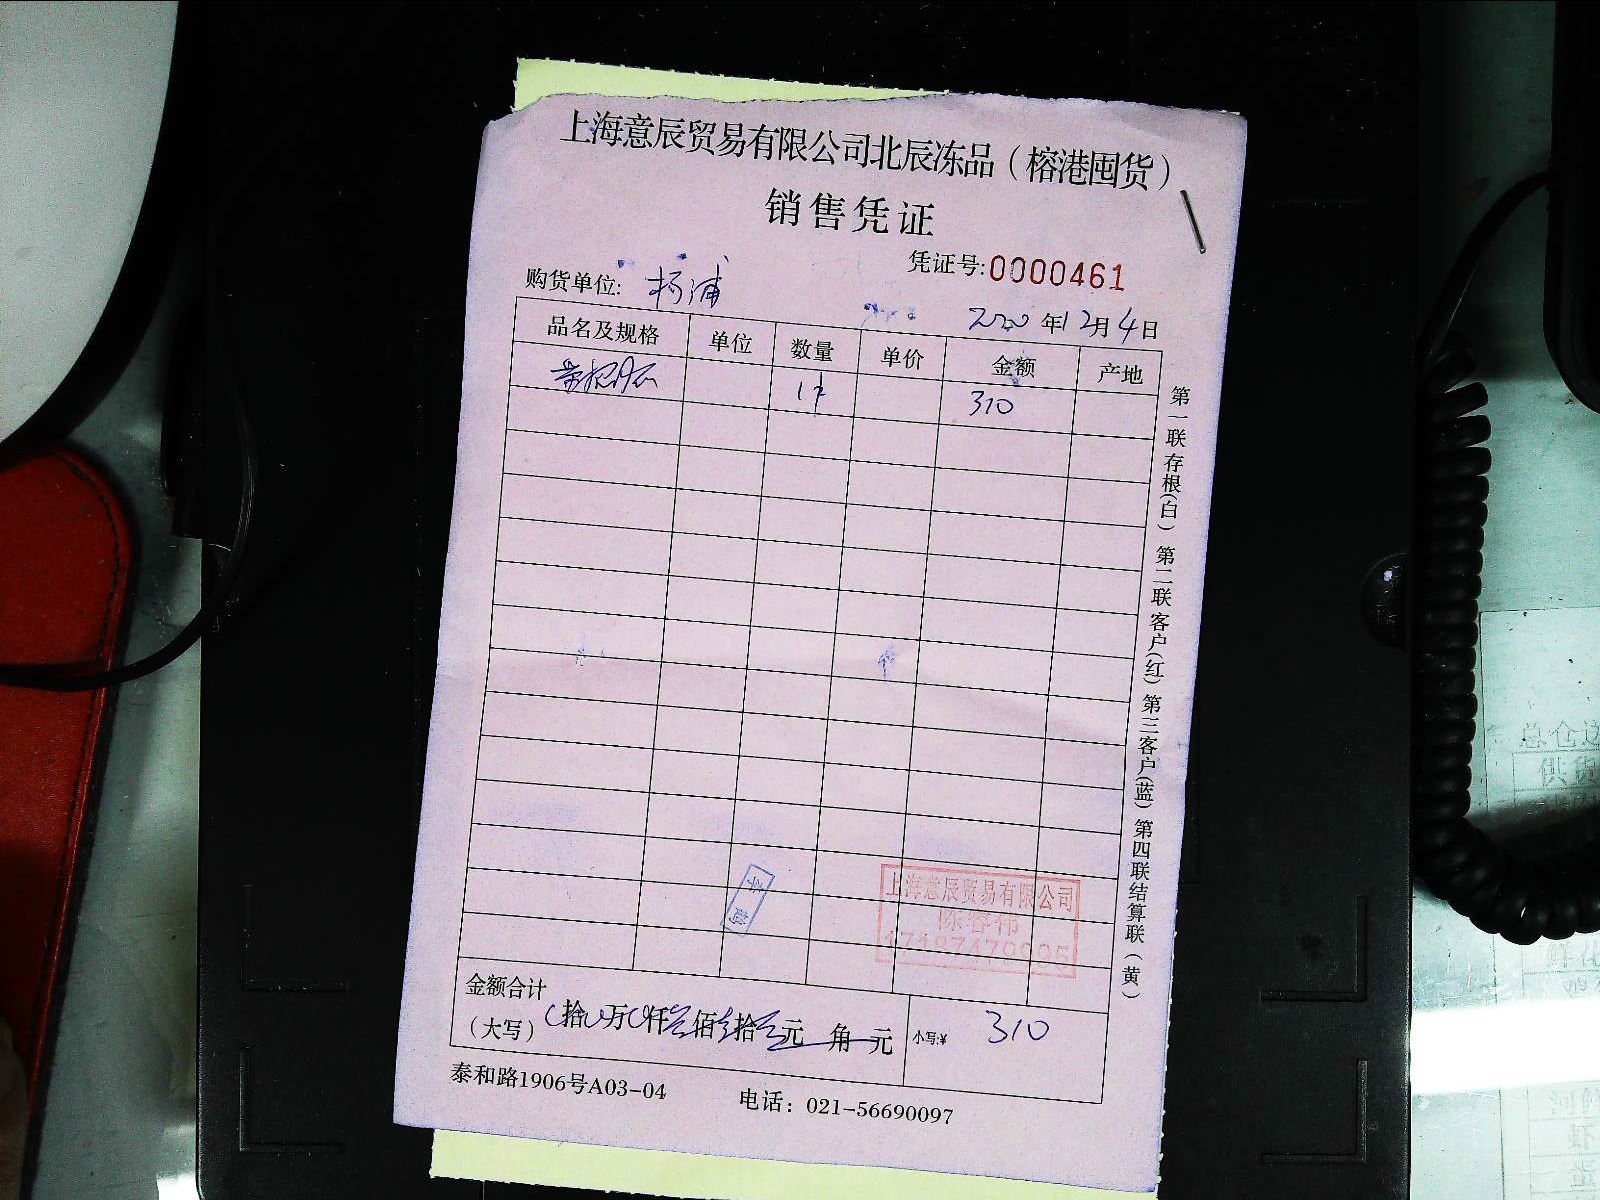 上海意辰贸易有限公司北辰冻品（榕港囤货）
销售凭证
凭证号:0000461
购货单位: 杨浦
2020年12月4日
品名及规格 单位 数量 单价 金额 产地
1件 310
第一联存根(白) 第二联客户(红) 第三客户(蓝) 第四联结算联(黄)
上海意辰贸易有限公司
陈容伟
金额合计
（大写） 拾 万 仟 佰 拾 元 角 元 小写:¥ 310
泰和路1906号A03-04 电话：021-56690097
总仓
供货